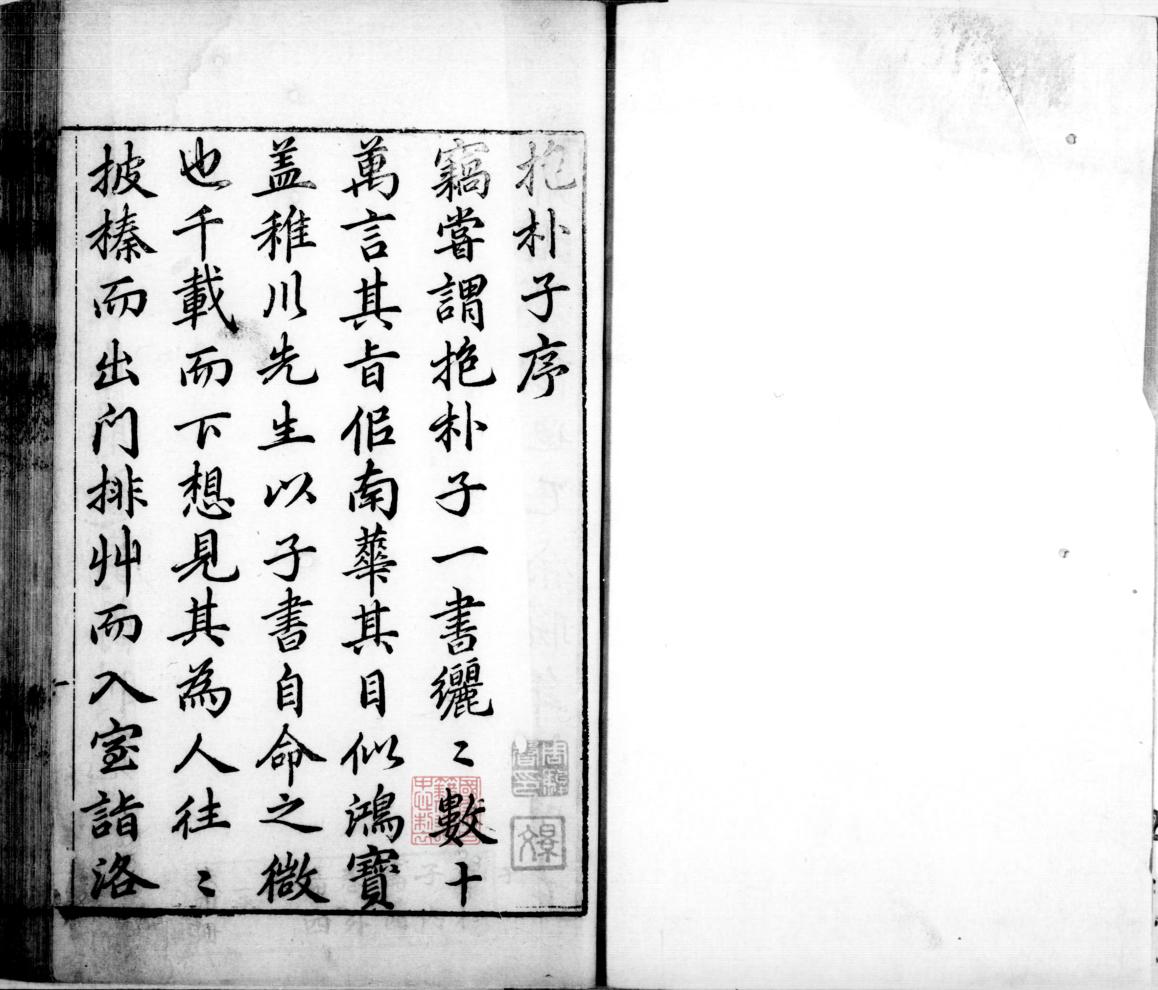 抱朴子序
竊嘗謂抱朴子一書纚〻數十
萬言其旨侣南華其目似鴻寶
盖稚川先生以子書自命之微
也千載而下想見其為人往〻
披榛而出门排艸而入室詣洛